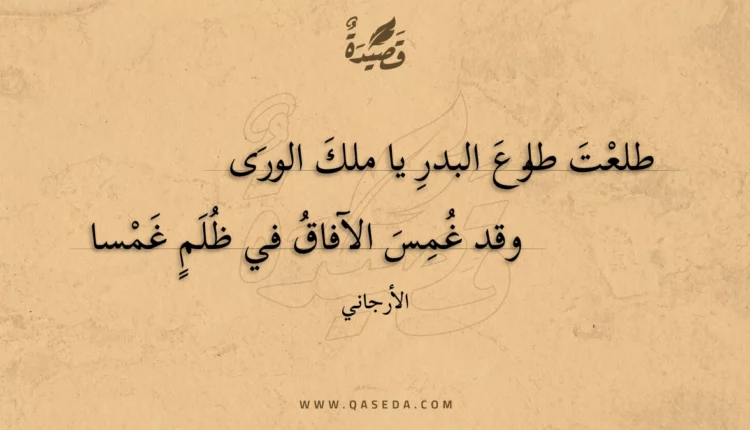 قَصِيْدَةٌ
طلعْتَ طلوعَ البدرِ يا ملكَ الورَى
وقد غُمِسَ الآفاقُ في ظُلَمٍ غَمْسا
الأرجاني
WWW.QASEDA.COM